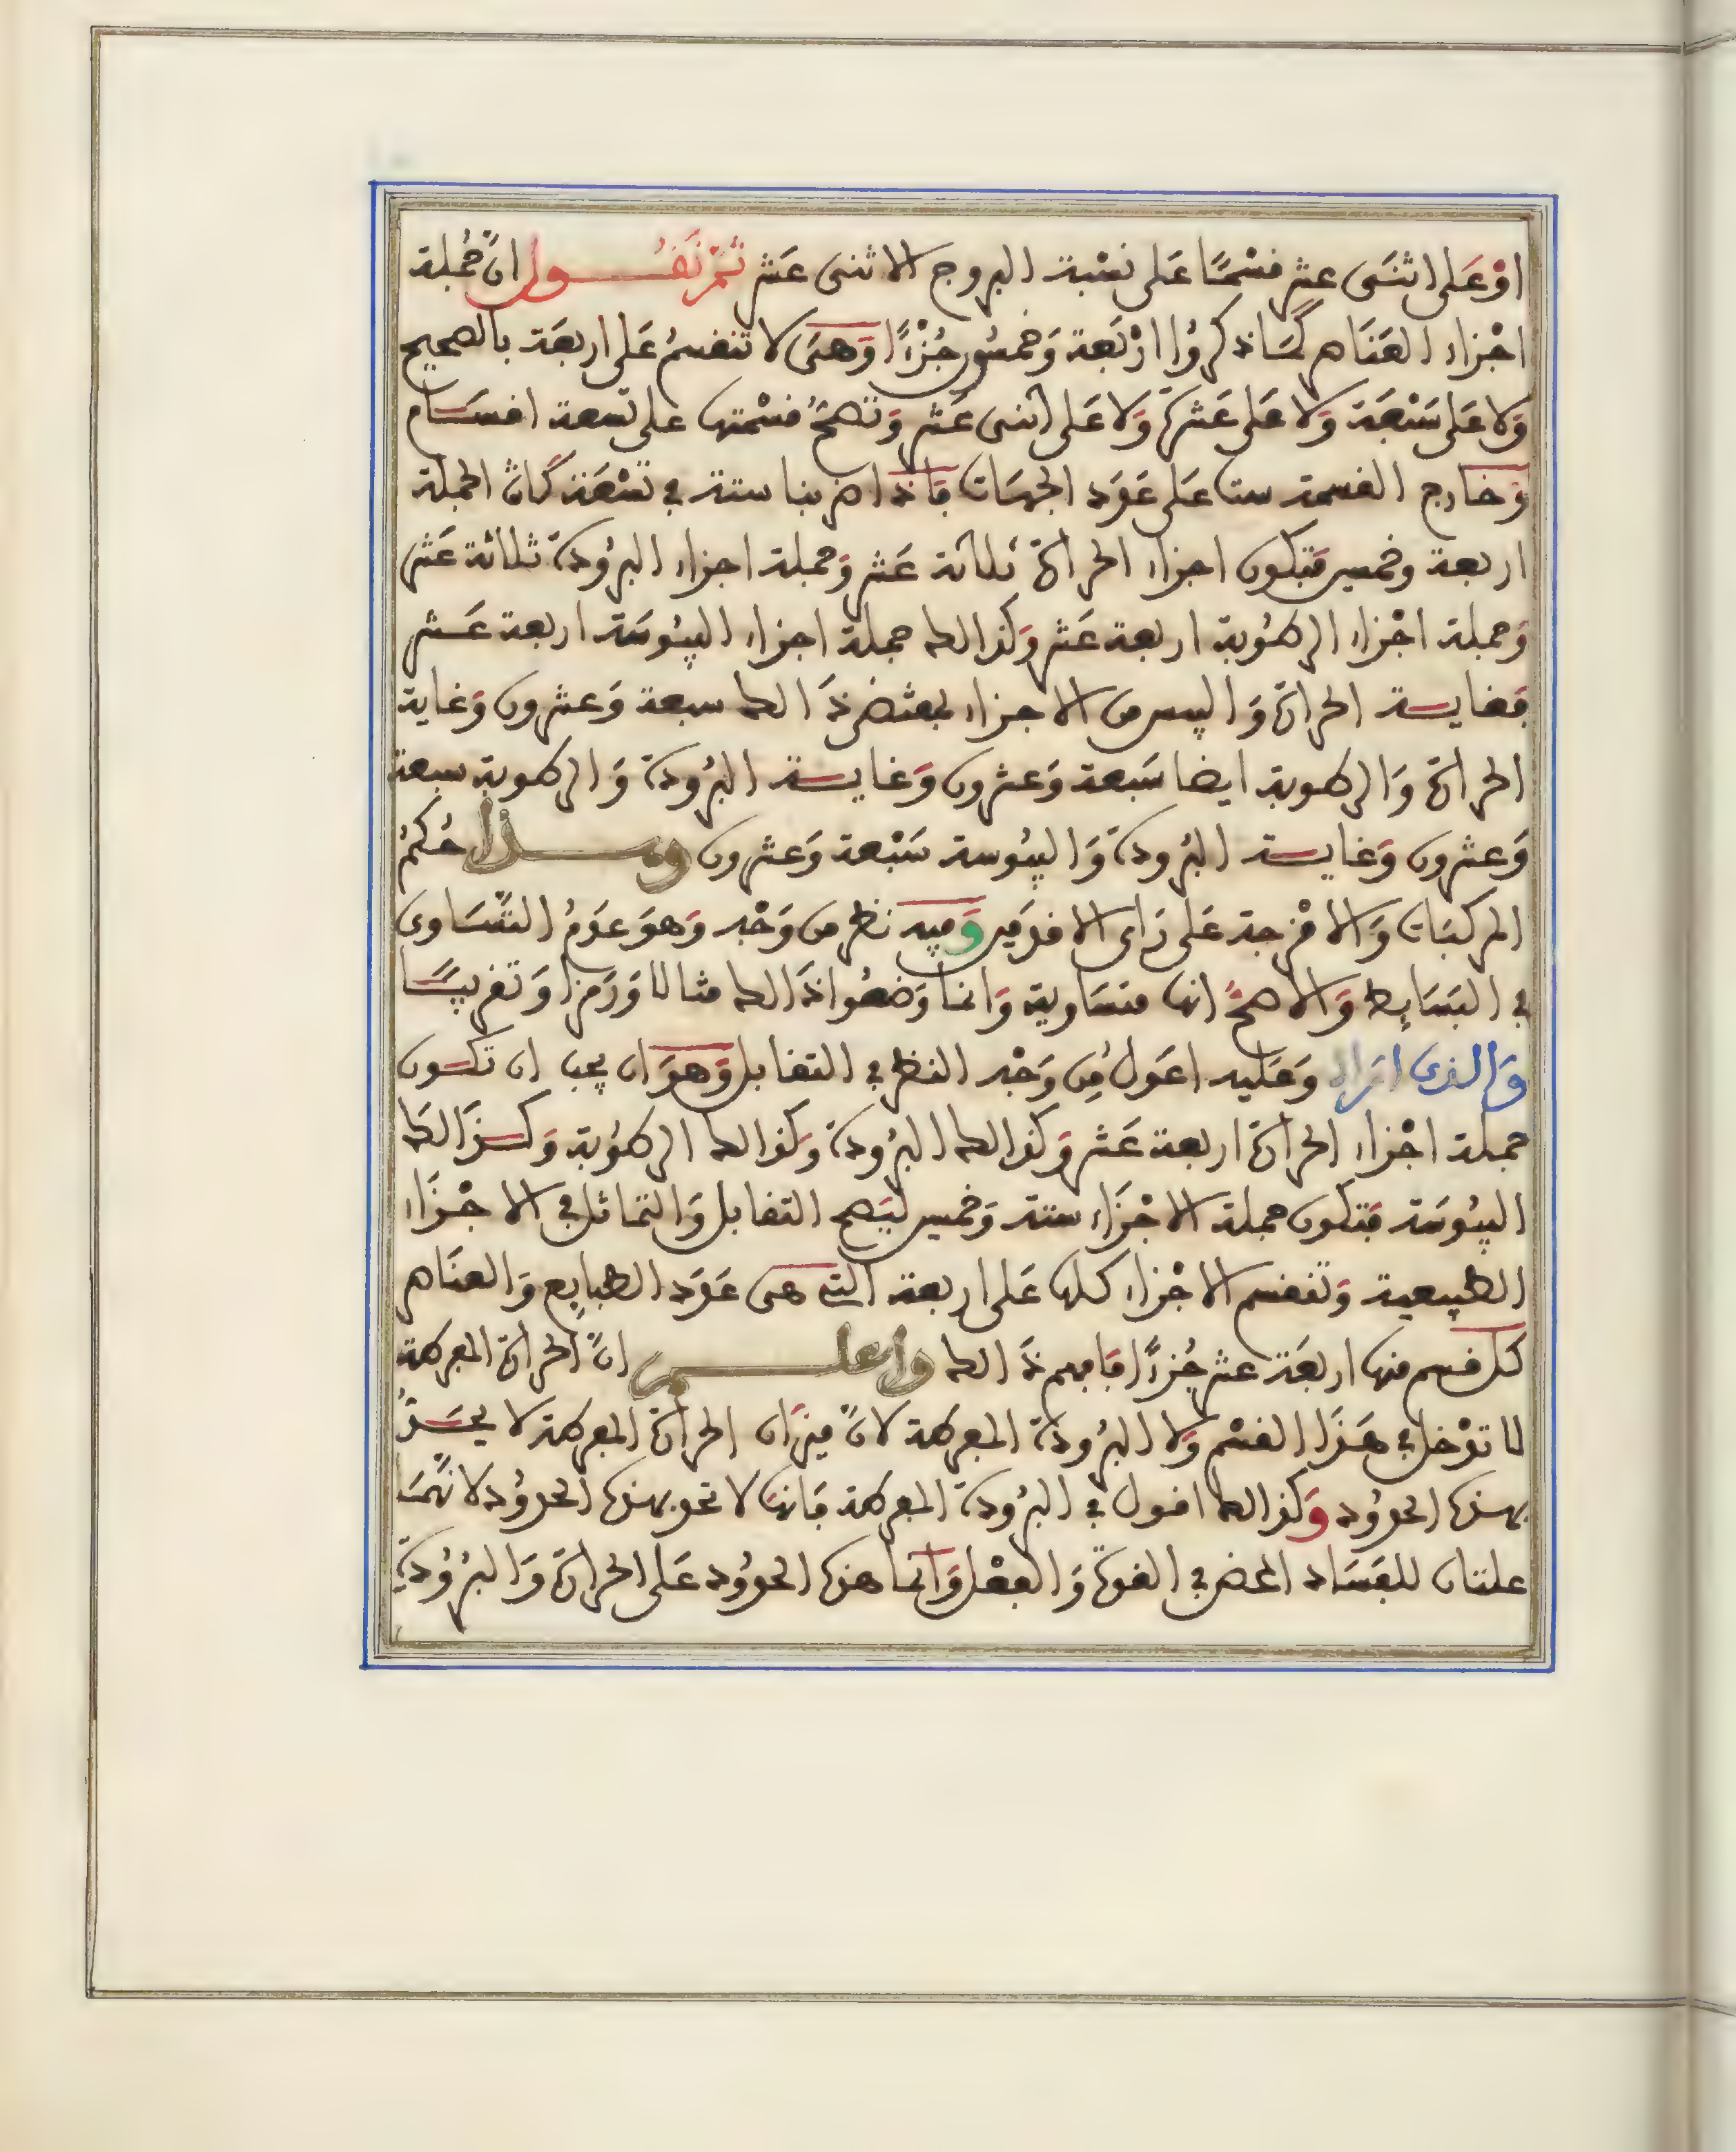 اوْ عَلى اثنَى عشر قسْمًا عَلى نسْبة البروج الاثنى عَشر ثمّ نَقُــول انّ جُملة
اجْزاء العَنَاصر كمَا ذكرُوا ارْبَعة وَخمسُون جُزْءًا وَهىَ لا تنقسمُ عَلى اربعَة بالصحيح
وَلا عَلى سَبْعَة وَلا عَلى عَشرة وَلا عَلى اثنى عَشر وَتصحّ قسْمتها على تسعة اقسَام
وَخارج القسمة ستا عَلى عَدَد الجهَات فَاذا ضربنا ستة في تسْعَة كَان الجملة
اربعة وخمسين فتكون اجزاء الحرارة ثلاثة عَشر وَجملة اجزاء البرُودة ثلاثة عَشر
وَجملة اجْزاء الرطُوبة اربعة عَشر وَكذالك جملة اجزاء اليبُوسَة اربعة عَشر
فغاية الحرارة وَاليبس من الاجزاء بمقتضى ذَالك سبعة وَعشرون وَغاية
الحرارة وَالرطوبة ايضا سَبعة وَعشرون وَغاية البرُودة وَالرطوبة سبعة
وَعشرون وَغاية البرُودة وَاليبُوسة سَبْعة وَعشرون وهــذا حُكمُ
المركبَات وَالامْزجة عَلى رَاى الاقدَمين وَفيه نظر من وَجْه وَهوَ عدَمُ التّسَاوى
في البَسَايِط وَالاصحّ انها متسَاوية وَانما وَضعُوا ذَالك مثالا وَرَمزا وَتقريبًا
وَالذى ارَاه وَعَليه اعَولُ مِن وَجْه النظر في التقابل وَهوَ ان يجب ان تكون
جملة اجْزاء الحرارة اربعة عَشر وَكذالك البرُودة وَكذالك الرطُوبة وَكذَالك
اليبُوسَة فتكون جملة الاجْزَاء ستة وَخمسين ليَصح التقابل وَالتماثل في الاجْزَاء
الطبيعية وَتنقسم الاجْزاء كلها عَلى اربعة التي هى عَدَد الطبايِع وَالعنَاصر
كل قسم منها اربعَة عشر جُزءًا فافهم ذَالك واعلــم انّ الحرارة المفرطة
لا تدْخل في هَذَا القسْم وَلا البرُودة المفرطة لانّ ميزَان الحرارة المفرطة لا يحَدّ
بهذه الحدُود وَكذالك اقول في البرُودة المفرطة فَانهَا لا تحد بهذه الحدُود لانّهمَا
علتان للفسَاد المحض في القوة وَالفعْل وَانما هذه الحدُود عَلى الحرارة وَالبرُودة